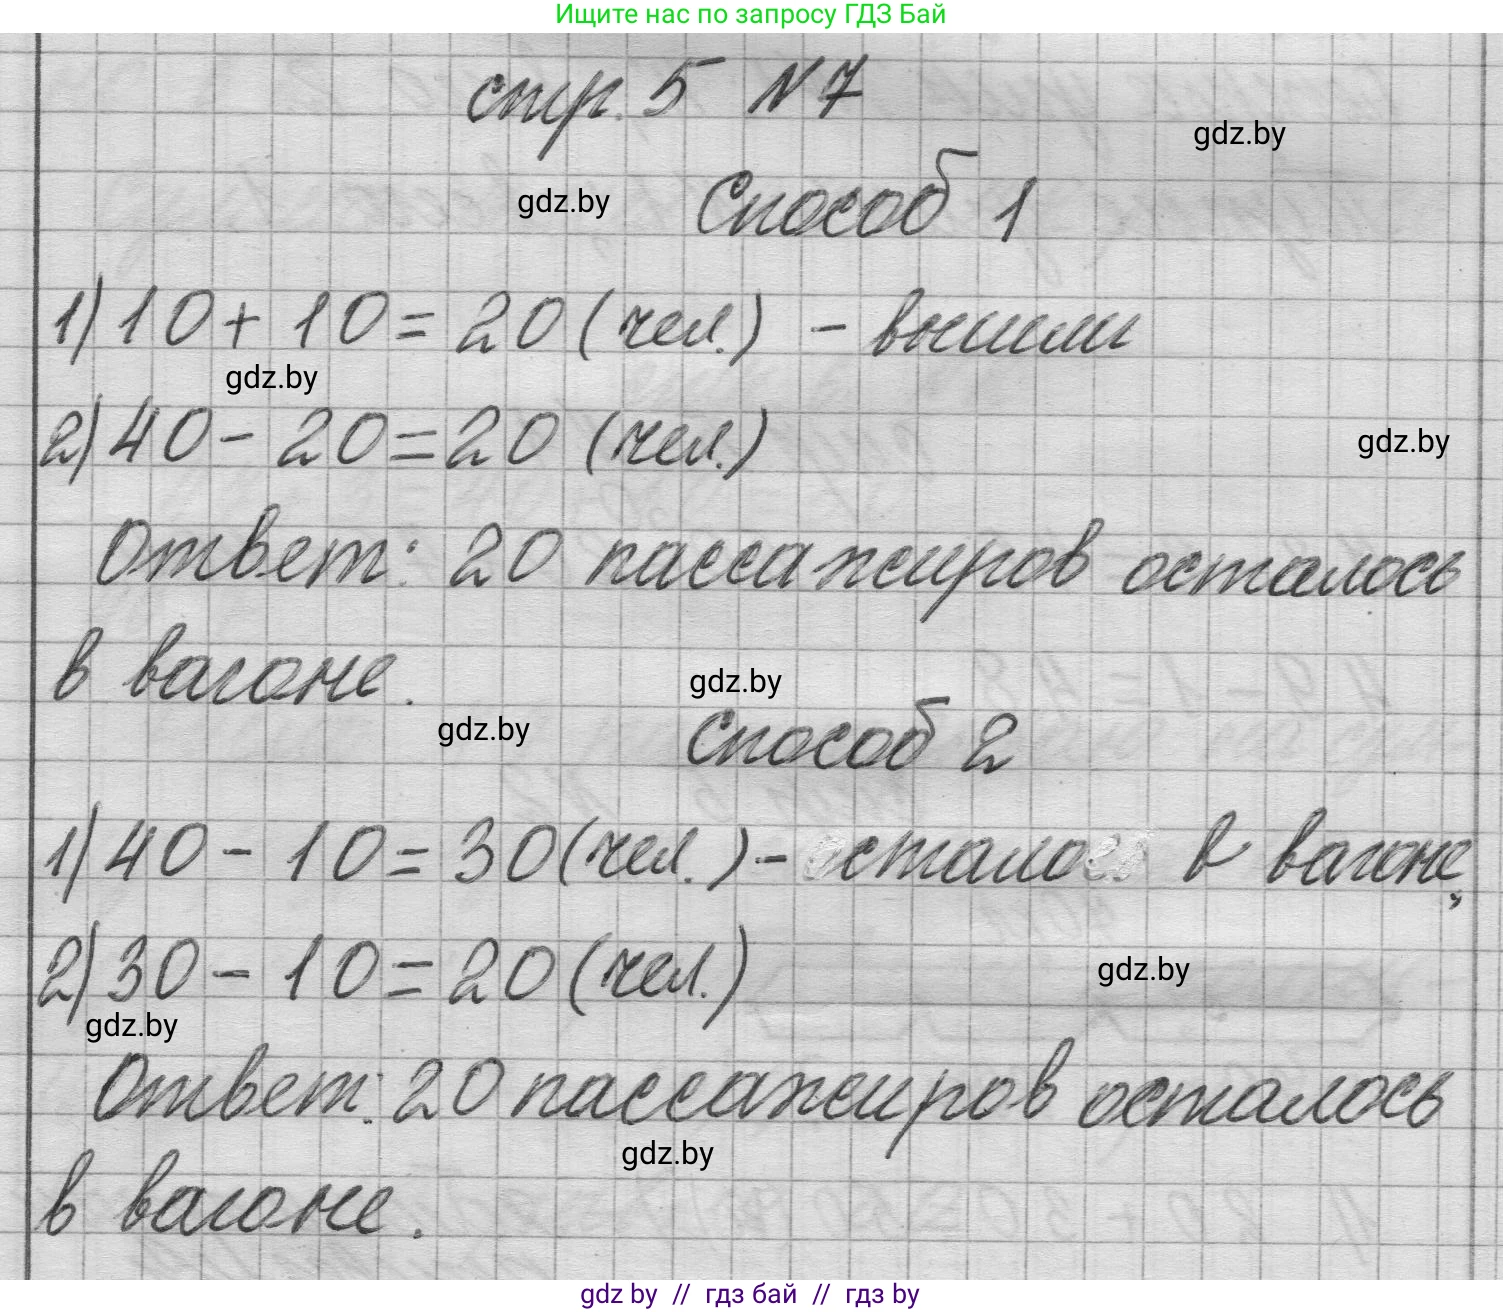 Ищите нас по запросу ГДЗ Бай
стр. 5 N 7
gdz.by
gdz.by
Способ 1
1) 10 + 10 = 20 (чел.) - вышли
gdz.by
2) 40 - 20 = 20 (чел.)
gdz.by
Ответ: 20 пассажиров осталось
в вагоне.
gdz.by
gdz.by
Способ 2
1) 40 - 10 = 30 (чел.) - осталось в вагоне,
2) 30 - 10 = 20 (чел.)
gdz.by
gdz.by
Ответ: 20 пассажиров осталось
gdz.by
в вагоне.
gdz by // гдз бай // гдз by